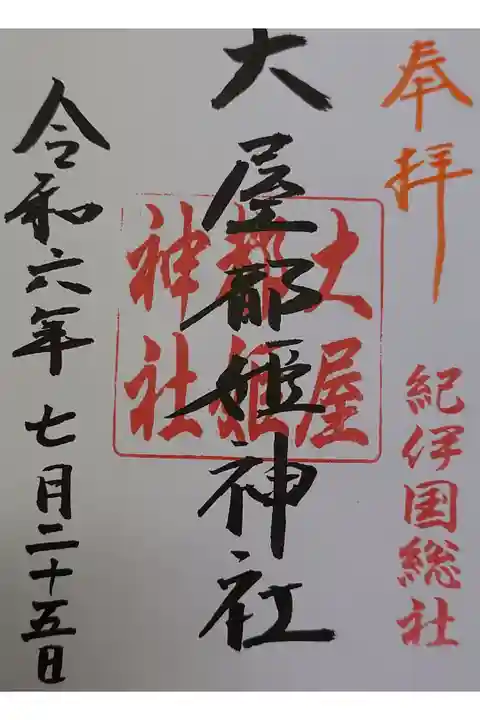 奉拝
紀伊国総社
大屋都姫神社
大屋
都姫
神社
令和六年七月二十五日